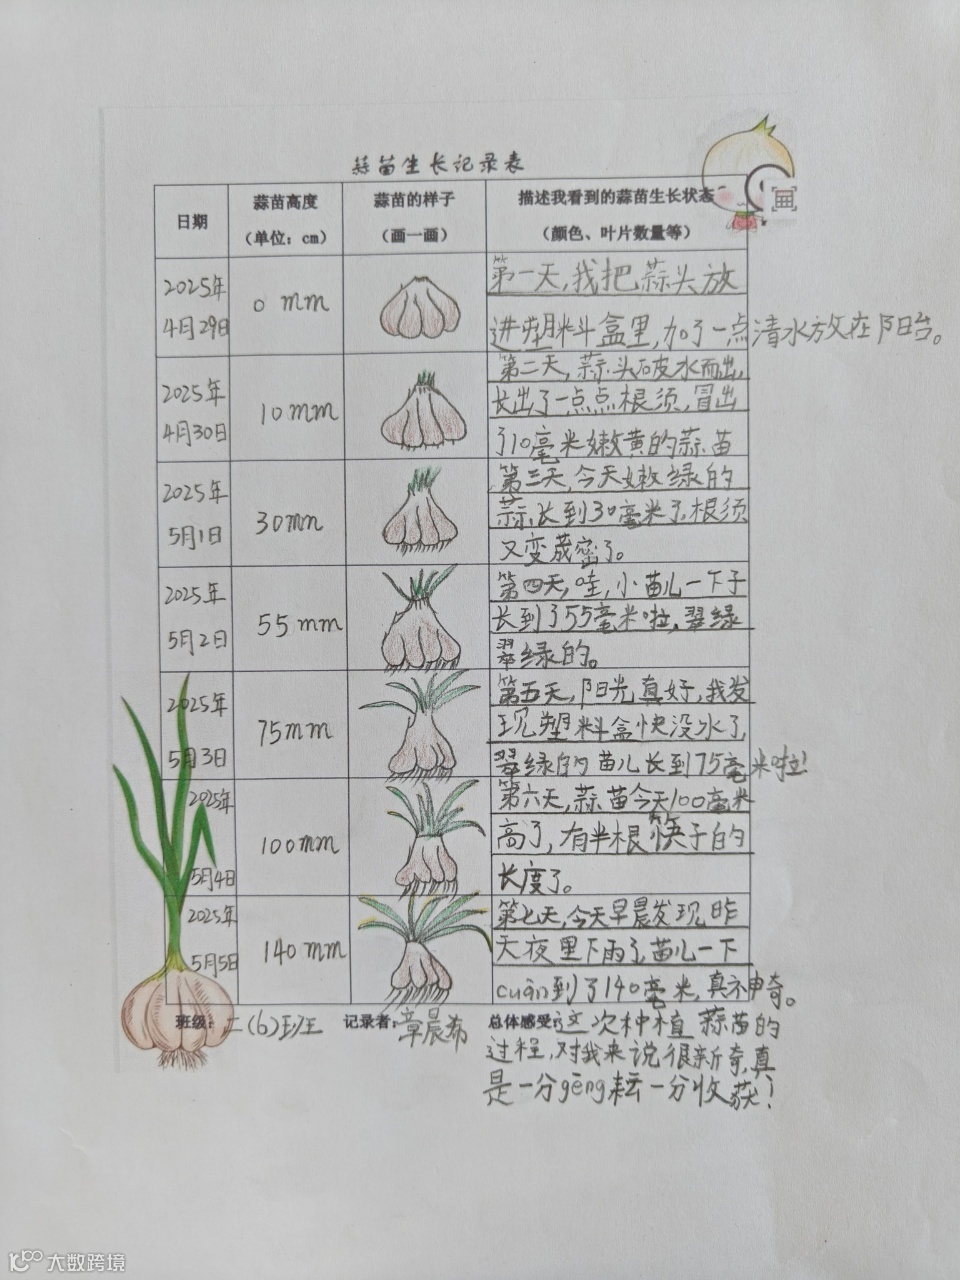 蒜苗生长记录表
日期
蒜苗高度
（单位：cm）
蒜苗的样子
（画一画）
描述我看到的蒜苗生长状态
（颜色、叶片数量等）
2025年
4月29日
0 mm
第一天,我把蒜头放
进塑料盒里,加了一点清水放在阳台。
2025年
4月30日
10mm
第二天,蒜头破水而出,
长出了一点点根须,冒出
了10毫米嫩黄的蒜苗
2025年
5月1日
30mm
第三天,今天嫩绿的
蒜,长到30毫米了,根须
又变茂密了。
2025年
5月2日
55mm
第四天,哇,小苗儿一下子
长到了55毫米啦,翠绿
翠绿的。
2025年
5月3日
75mm
第五天,阳光真好,我发
现塑料盒快没水了,
翠绿的苗儿长到75毫米啦!
2025年
5月4日
100mm
第六天,蒜苗今天100毫米
高了,有半根筷子的
长度了。
2025年
5月5日
140mm
第七天,今天早晨发现昨
天夜里下雨了,苗儿一下
cuān到了140毫米,真神奇。
班级：二(6)班
记录者：章晨希
总体感受：这次种植蒜苗的
过程,对我来说很新奇,真
是一分gēng耘一分收获!
大数跨境